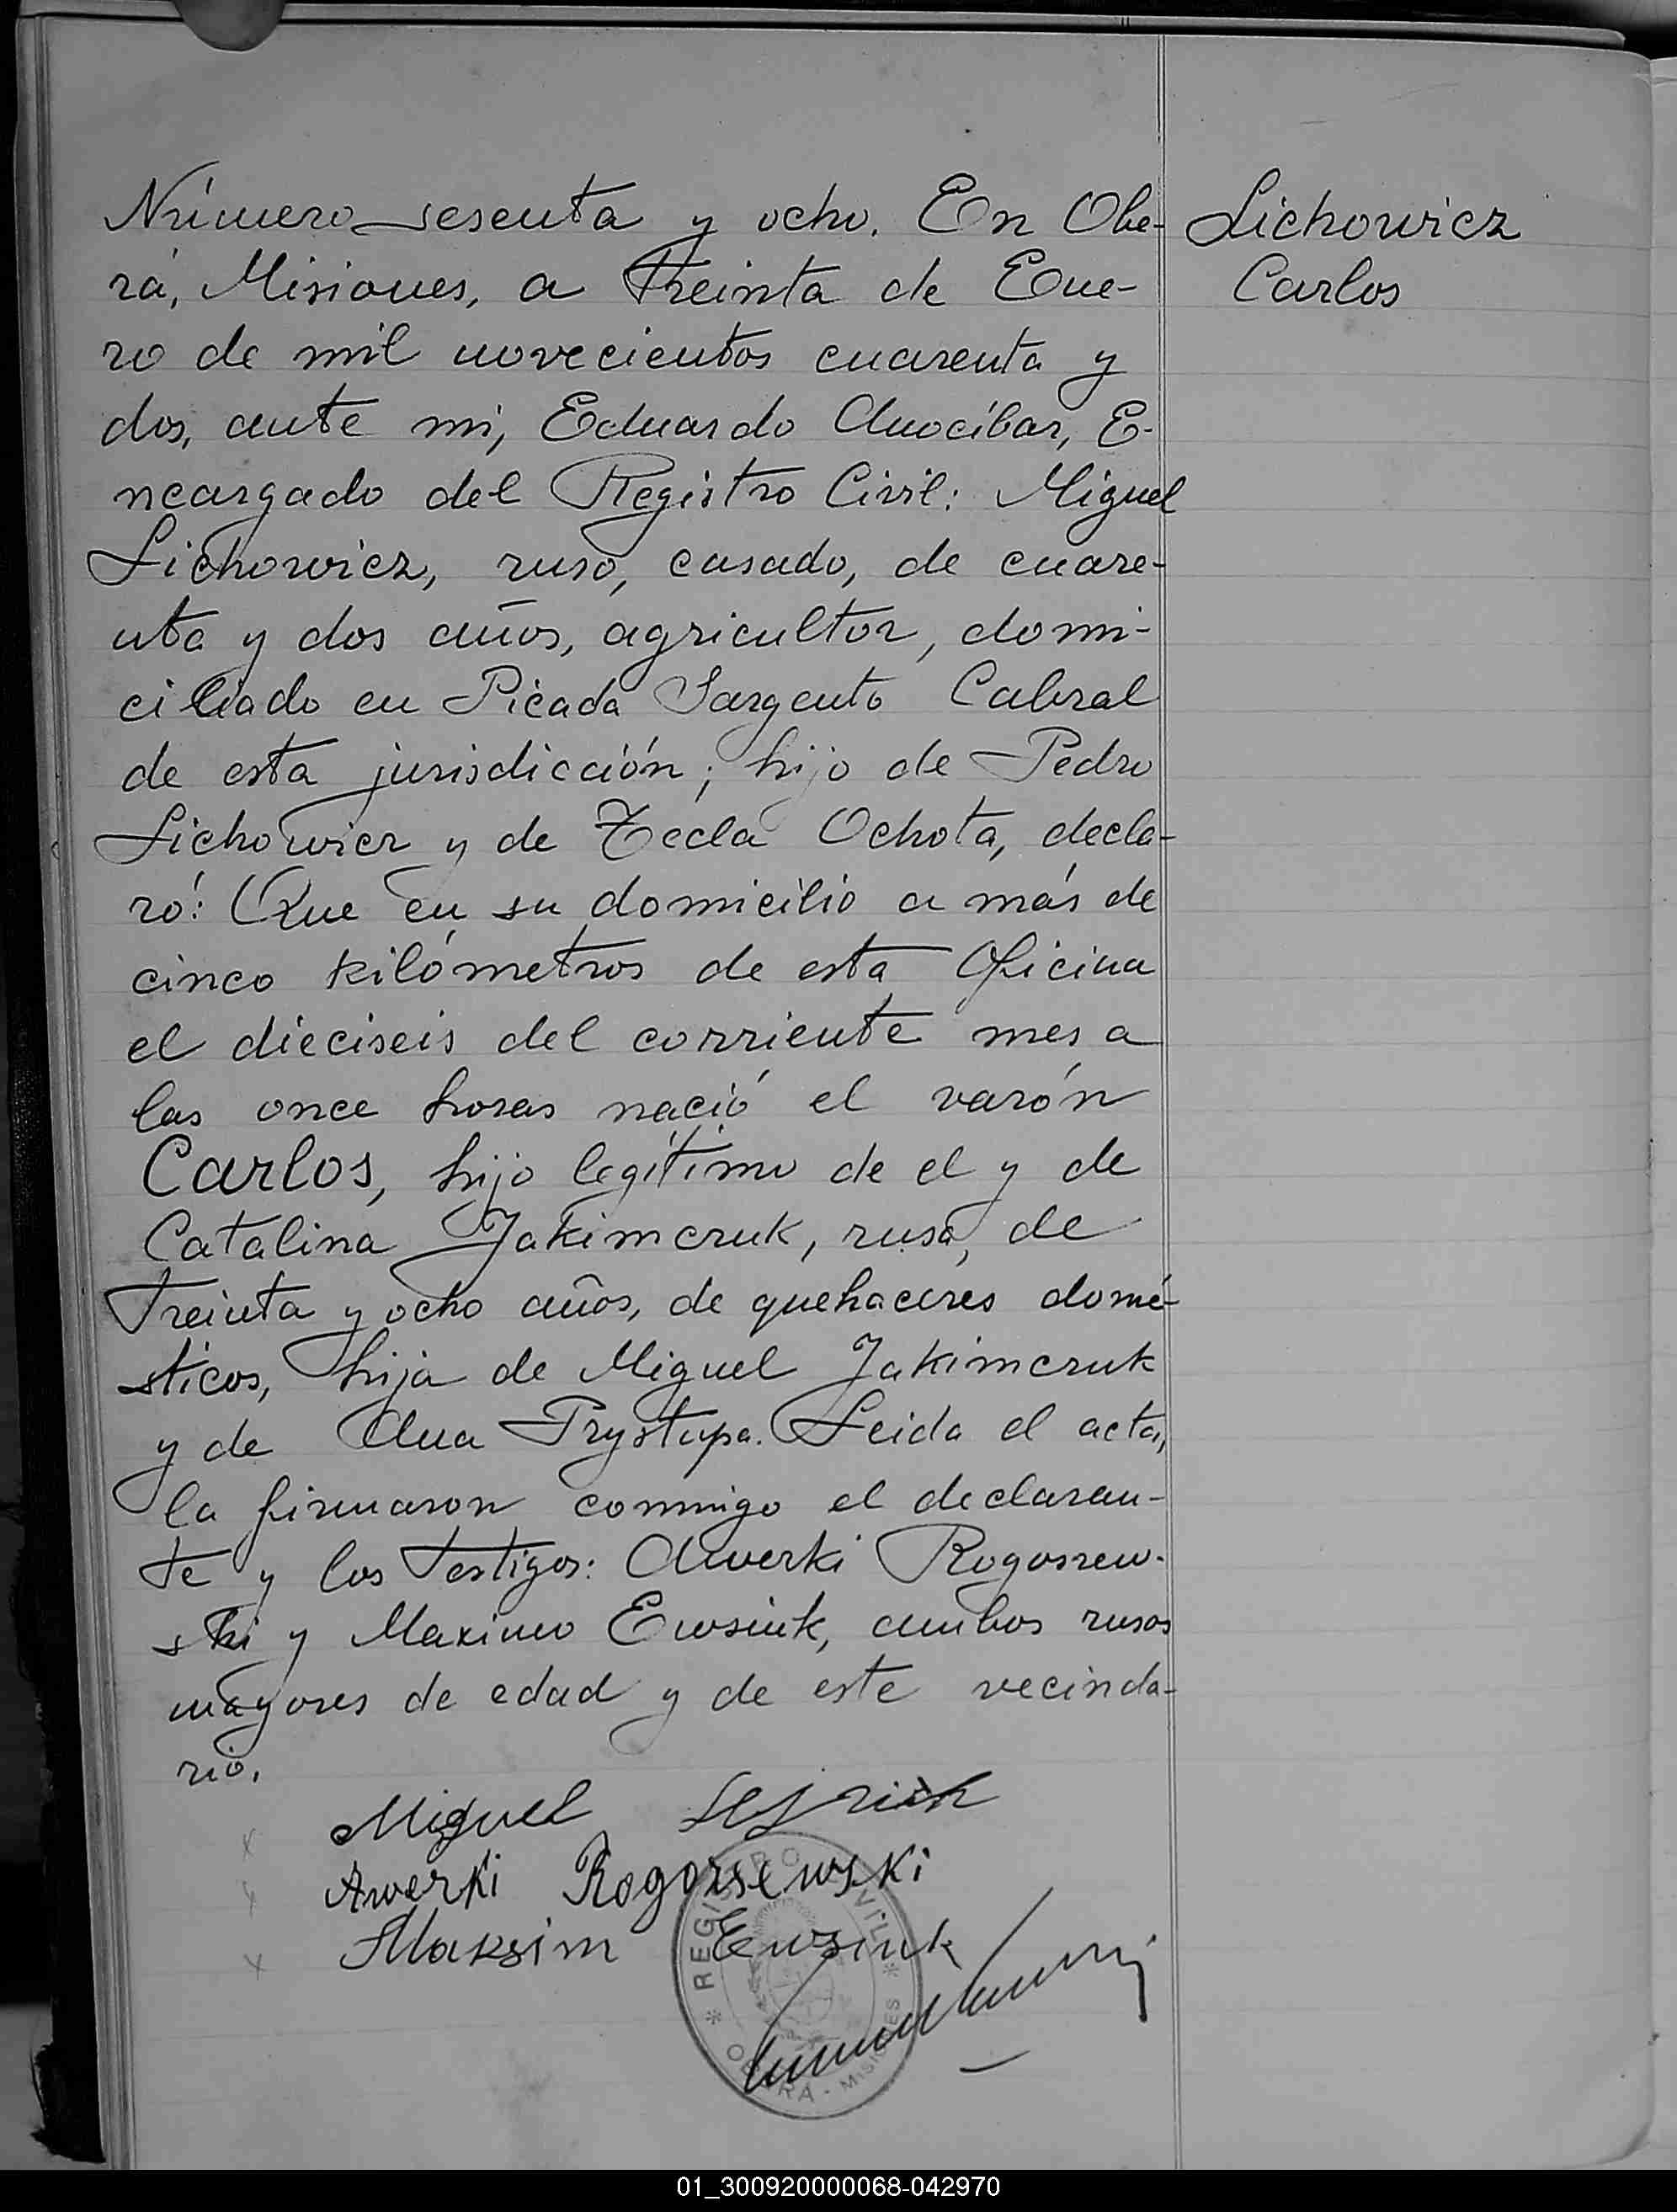 Número sesenta y ocho. En Obe-
rá, Misiones, a treinta de Ene-
ro de mil novecientos cuarenta y
dos, ante mi, Eduardo Anocíbar, E-
ncargado del Registro Civil: Miguel
Lichowicz, ruso, casado, de cuare-
nta y dos años, agricultor, domi-
ciliado en Picada Sargento Cabral
de esta jurisdicción; hijo de Pedro
Lichowicz y de Tecla Ochota, decla-
ró: Que en su domicilio a más de
cinco kilómetros de esta Oficina
el dieciseis del corriente mes a
las once horas nació el varón
Carlos, hijo legítimo de el y de
Catalina Jakimczuk, rusa, de
treinta y ocho años, de quehaceres domé-
sticos, hija de Miguel Jakimczuk
y de Ana Prystupa. Leida el acta,
la firmaron conmigo el declaran-
te y los testigos: Awerki Rogoszew-
ski y Maximo Ewsiuk, ambos rusos
mayores de edad y de este vecinda-
rio.
Lichowicz
Carlos
Miguel
Awerki Rogorsewski
Maksim Ewsiuk
REGISTRO CIVIL
OBERÁ - MISIONES
01_300920000068-042970